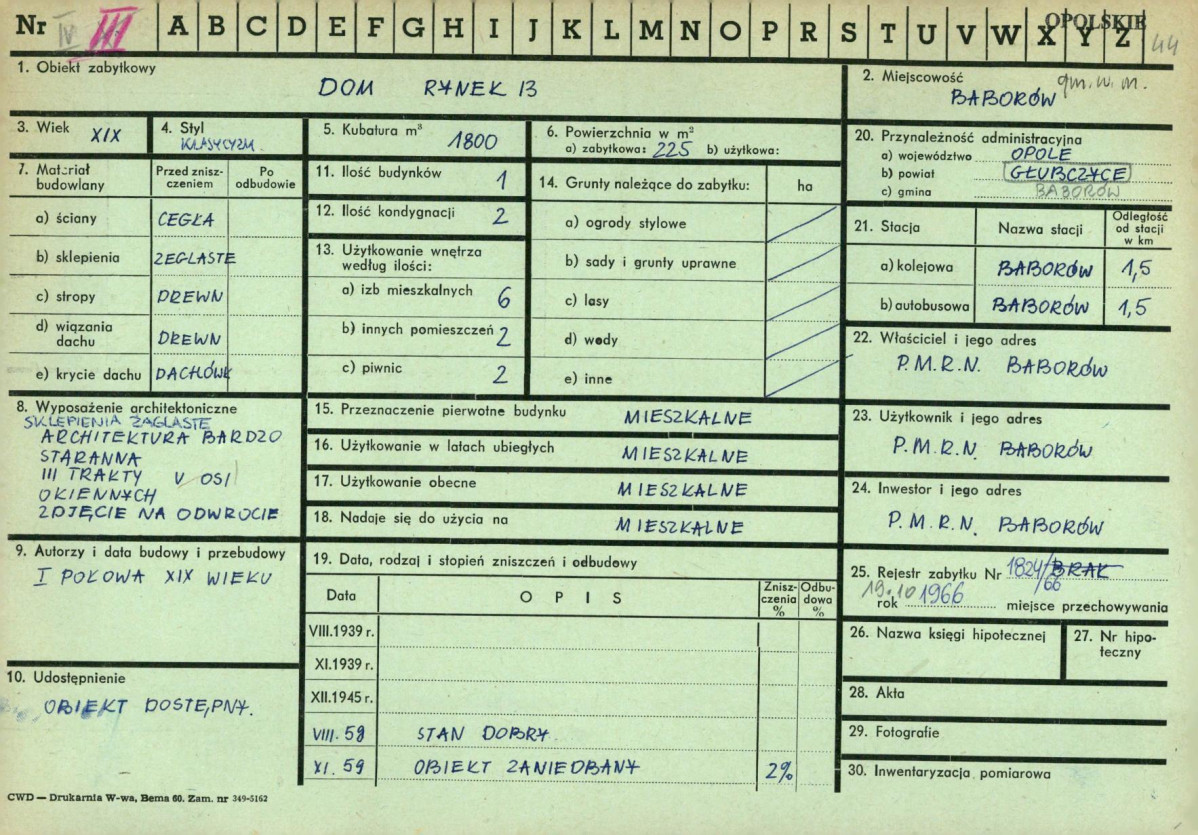 Nr IV III A B C D E F G H I J K L M N O P R S T U V W X Y Z OPOLSKIE 44
1. Obiekt zabytkowy
DOM RYNEK 13
2. Miejscowość gm. w. m.
BABORÓW
3. Wiek XIX
4. Styl
KLASYCYZM
5. Kubatura m³ 1800
6. Powierzchnia w m²
a) zabytkowa: 225 b) użytkowa:
20. Przynależność administracyjna
a) województwo OPOLE
b) powiat GŁUBCZYCE
c) gmina BABORÓW
7. Materiał budowlany
Przed znisz-
czeniem
Po
odbudowie
a) ściany CEGŁA
b) sklepienia ŻEGLASTE
c) stropy DREWN
d) wiązania
dachu DREWN
e) krycie dachu DACHÓWK
11. Ilość budynków 1
12. Ilość kondygnacji 2
13. Użytkowanie wnętrza
według ilości:
a) izb mieszkalnych 6
b) innych pomieszczeń 2
c) piwnic 2
14. Grunty należące do zabytku: ha
a) ogrody stylowe
b) sady i grunty uprawne
c) lasy
d) wody
e) inne
21. Stacja Nazwa stacji
Odległość
od stacji
w km
a) kolejowa BABORÓW 1,5
b) autobusowa BABORÓW 1,5
22. Właściciel i jego adres
P.M.R.N. BABORÓW
8. Wyposażenie architektoniczne
SKLEPIENIA ŻAGLASTE
ARCHITEKTURA BARDZO
STARANNA
III TRAKTY V OSI
OKIENNYCH
ZDJĘCIE NA ODWROCIE
15. Przeznaczenie pierwotne budynku MIESZKALNE
16. Użytkowanie w latach ubiegłych MIESZKALNE
17. Użytkowanie obecne MIESZKALNE
18. Nadaje się do użycia na MIESZKALNE
23. Użytkownik i jego adres
P.M.R.N. BABORÓW
24. Inwestor i jego adres
P.M.R.N. BABORÓW
9. Autorzy i data budowy i przebudowy
I POŁOWA XIX WIEKU
19. Data, rodzaj i stopień zniszczeń i odbudowy
Data OPIS
Znisz-
czenia
%
Odbu-
dowa
%
VIII.1939 r.
XI.1939 r.
XII.1945 r.
VIII. 59 STAN DOBRY.
XI. 59 OBIEKT ZANIEDBANY 2%
25. Rejestr zabytku Nr 1824/66 BRAK
19.10 1966
rok miejsce przechowywania
26. Nazwa księgi hipotecznej
27. Nr hipo-
teczny
10. Udostępnienie
OBIEKT DOSTĘPNY.
28. Akta
29. Fotografie
30. Inwentaryzacja pomiarowa
CWD — Drukarnia W-wa, Bema 60. Zam. nr 349-5162